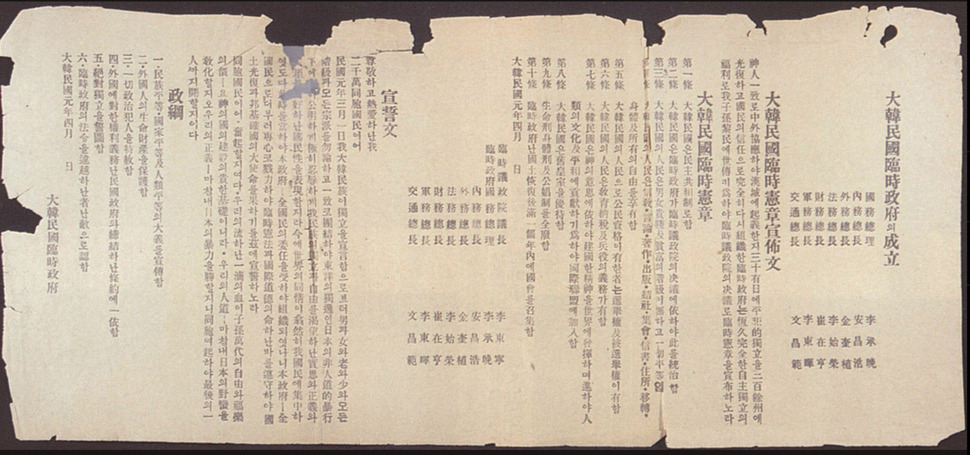 大韓民國臨時政府의成立
國務總理 李承晩
內務總長 安昌浩
外務總長 金奎植
法務總長 李始榮
財務總長 崔在亨
軍務總長 李東輝
交通總長 文昌範
大韓民國臨時憲章宣佈文
神人一致로中外協應하야漢城에起義한지三十有日에平和的獨立을三百餘州에
光復하고國民의信任으로完全히다시組織한臨時政府는恒久完全한自主獨立의
福利로我子孫黎民에世傳키爲하야臨時議政院의決議로臨時憲章을宣布하노라
大韓民國臨時憲章
第一條 大韓民國은民主共和制로함
第二條 大韓民國은臨時政府가臨時議政院의決議에依하야此를統治함
第三條 大韓民國의人民은男女貴賤及貧富의階級이無하고一切平等임
大韓民國의人民은信敎・言論・著作・出版・結社・集會・信書・住所・移轉・
身體及所有의自由를享有함
第五條 大韓民國의人民으로公民資格이有한者는選擧權及被選擧權이有함
第六條 大韓民國의人民은敎育納稅及兵役의義務가有함
第七條 大韓民國은神의意思에依하야建國한精神을世界에發揮하며進하야人
類의文化及平和에貢獻하기爲하야國際聯盟에加入함
第八條 大韓民國은舊皇室을優待함
第九條 生命刑身體刑及公娼制를全廢함
第十條 臨時政府난國土恢復後滿一個年內에國會를召集함
大韓民國元年四月 日
臨時議政院議長 李東寧
臨時政府國務總理 李承晩
內務總長 安昌浩
外務總長 金奎植
法務總長 李始榮
財務總長 崔在亨
軍務總長 李東輝
交通總長 文昌範
宣誓文
尊敬하고熱愛하난我
二千萬同胞國民이어
民國元年三月一日我大韓民族이獨立을宣言함으로브터男과女와老와少와모든
階級과모든宗派를勿論하고一致코團結하야東洋의獨逸인日本의非人道的暴行
下에 公明하게極히忍辱하게我民族의獨立과自由를渴望하난實思와正義와
하난國民性을表現한지라今에世界의同情이翕然히我國民에集中하
엿도다 時를當하야本政府 全國民의委任을受하야組織되엿나니本政府 全
國民으로더부러專心코戮力하야臨時憲法과國際道德의命하난바를遵守하야國
土光復과邦基確固의大使命을果하기를玆에宣誓하노라
同胞國民이어奮起할지어다우리의流하난一滴의血이子孫萬代의自由와福樂
의價이요神의國의建設의貴한基礎이니라・우리의人道 마참내日本의野蠻을
敎化할지오우리의正義 마참내日本의暴力을勝할지니同胞여起하야最後의一
人까지鬪할지어다
政綱
一・民族平等・國家平等及人類平等의大義를宣傳함
二・外國人의生命財産을保護함
三・一切政治犯人을特赦함
四・外國에對한權利義務난民國政府와締結하난條約에一依함
五・絶對獨立을誓圖함
六・臨時政府의法令을違越하난者난敵으로認함
大韓民國元年四月 日
大韓民國臨時政府